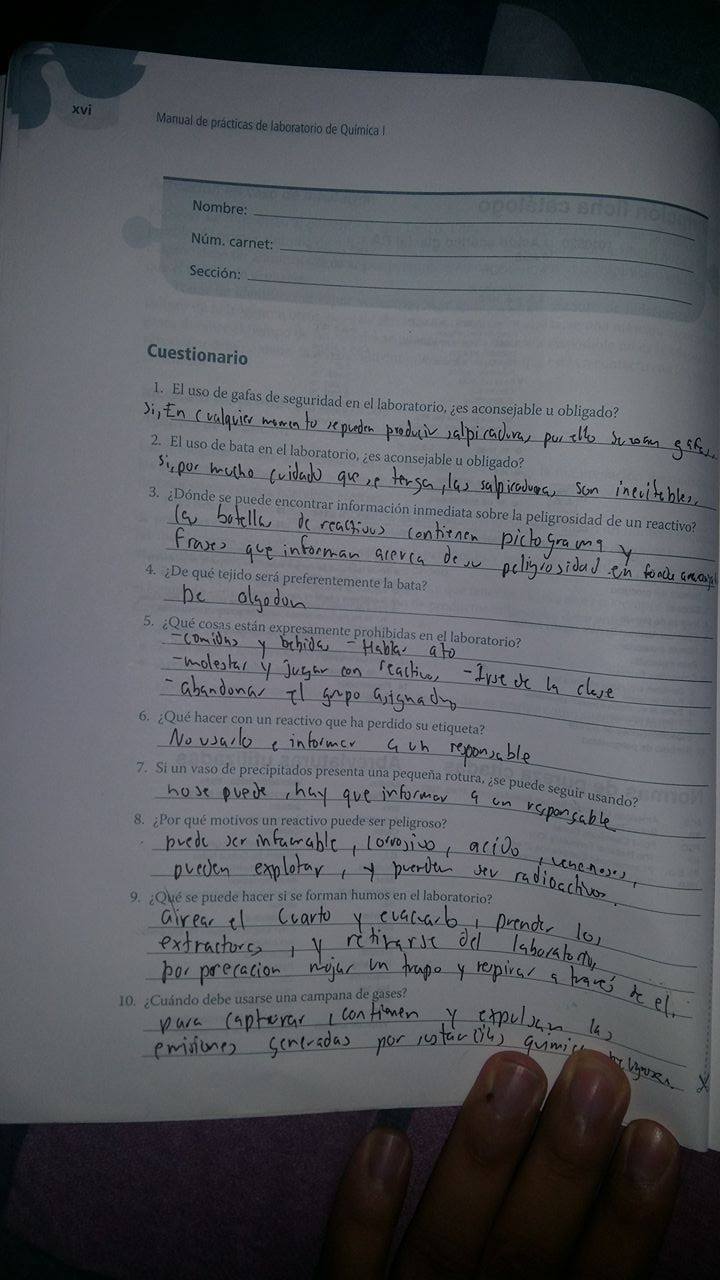 xvi
Manual de prácticas de laboratorio de Química I
Nombre:
Núm. carnet:
Sección:
Cuestionario
1. El uso de gafas de seguridad en el laboratorio, ¿es aconsejable u obligado?
Si, En cualquier momento se pueden producir salpicaduras, por ello se usan gafas
2. El uso de bata en el laboratorio, ¿es aconsejable u obligado?
Si, por mucho cuidado que se tenga, las salpicaduras son inevitables.
3. ¿Dónde se puede encontrar información inmediata sobre la peligrosidad de un reactivo?
las botellas de reactivos contienen pictograma y
frases que informan acerca de su peligrosidad en fondo
4. ¿De qué tejido será preferentemente la bata?
De algodon
5. ¿Qué cosas están expresamente prohibidas en el laboratorio?
- comidas y bebidas - Hablar alto
- molestar y jugar con reactivos - Irse de la clase
- abandonar el grupo asignado
6. ¿Qué hacer con un reactivo que ha perdido su etiqueta?
No usarlo e informar a un responsable
7. Si un vaso de precipitados presenta una pequeña rotura, ¿se puede seguir usando?
no se puede, hay que informar a un responsable
8. ¿Por qué motivos un reactivo puede ser peligroso?
puede ser infamable, corrosivo, acido, venenosos,
pueden explotar, y pueden ser radioactivos.
9. ¿Qué se puede hacer si se forman humos en el laboratorio?
airear el cuarto y evacuarlo, prender los
extractores, y retirarse del laboratorio,
por precacion mojar un trapo y respirar a través de el.
10. ¿Cuándo debe usarse una campana de gases?
para capturar, contienen y expulsan las
emisiones generadas por sustancias